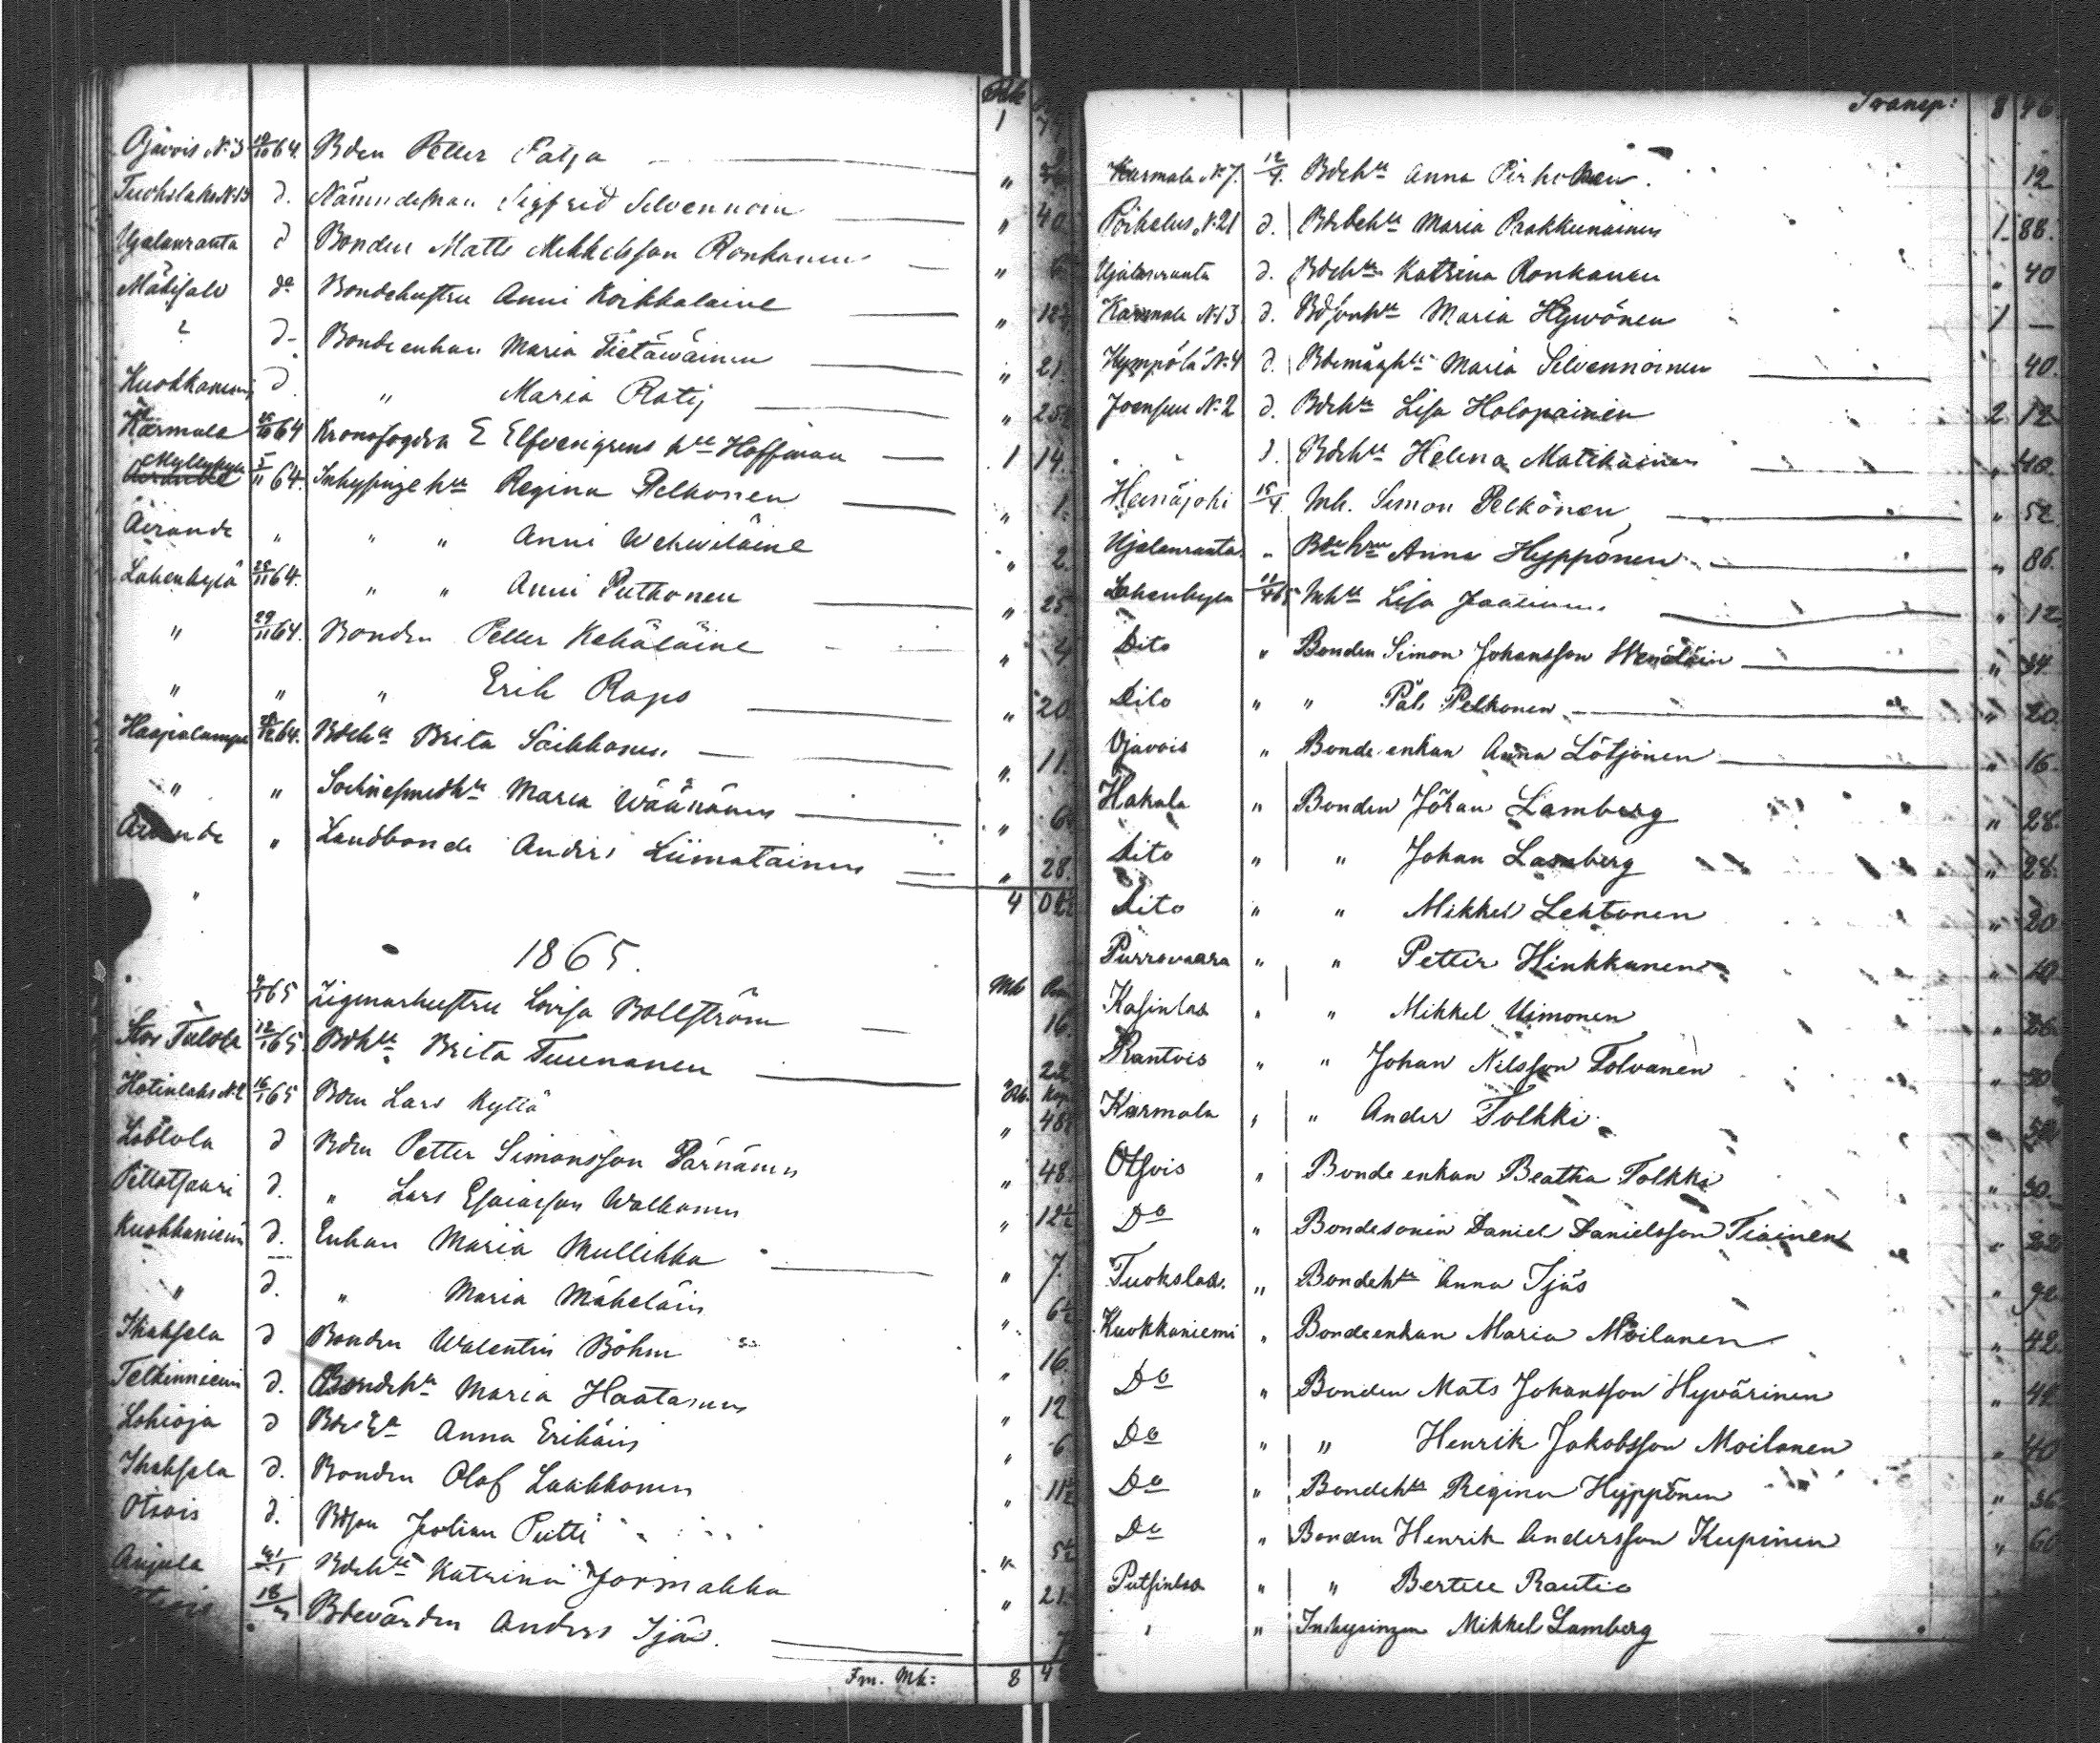 Rbl
1
Ojavois N:3 19/10 64. Bden Petter Patja
Tuokslaks N:13 d. Nämndeman Sigfrid Silvennoin " 40.
Ujalanranta d Bonden Matts Mikkelsson Ronkanen "
Mäkisalo do Bondehustru Anni Koikkalaine " 12½
d- Bondeenkan Maria Tietäwäinen " 21.
Kuokkaniemi d. " Maria Ratij " 25
Kärmala 25/10 64 Kronofogden E Elfvengrens hu Hoffman 1 14.
Myllykylä 5/11 64. Inhysinge hu Regina Pelkonen " 1.
Äirande " " " Anni Wehviläine " 2.
Lahenkylä 25/11 64. " " Anni Putkonen " 25
" 29/11 64. Bonden Petter Kekäläine " 4
" " " Erik Raps " 20
Haapalampi /12 64. Bdehu Brita Saikkonen ". 11.
" " Sochnesmedhu Maria Wäänänen " 6.
" Landbonde Anders Liimatainen " 28.
4
1865.
Mk Pen
/1 65 Zigenarhustru Lovisa Bollström 16.
Stor Tulola 12/1 65. Bdhu Brita Tuunanen " 22
Rb. Kop
Hotinlaks N:2 16/1 65 Bden Lars Kyttä " 48
Lottola d Bden Petter Simonsson Pärnänen " 48.
Pellotsaari d. " Lars Esaiasson Walkonen " 12½
Kuokkaniemi d. Enkan Maria Mullikka " 7.
" d. " Maria Mäkeläin ". 6½
Ihaksela d Bonden Walentin Böhm " 16.
Telkinniemi d. Bondehu Maria Haatanen " 12
Lohioja d Bde Ea Anna Erikäin " 6
Ihaksela d. Bonden Olof Laakkonen " 11½
Otsois d. Bdson Johan Putti " 5½
Anjala Bdehu Katrina Jormakka " 21.
18/ Bdevärden Anders Ijäs. 7
Fm. Mk: 8 4

Transp: 8 46.
Kurmola N:7. 12/4. Bdehu Anna Pirhonen. 12
Pörkelus N:21 d. Bdehu Maria Prokkunäinen 1. 88.
Ujalanranta d. Bdehu Katrina Ronkanen " 40
Kärmala N:13 d. Bdsonhu Maria Hyvönen 1 —
Kympölä N:4 d. Bdemåghu Maria Silvennoinen 40.
Joensuu N:2 d. Bdehu Lisa Holopainen 2 12
" d. Bdehu Helena Matikainen " 40.
Heinäjoki 15/4 Mk. Simon Pelkonen " 52
Ujalanranta " Bde hru Anna Hyppönen " 86.
Lahenkylä 11/4 65 Mhu Lisa " 12
Dito " Bonden Simon Johansson Wenäläin " 34.
Dito " " Pål Pelkonen " 20.
Ojavois " Bonde enkan Anna Lötjönen " 16.
Hakala " Bonden Johan Lamberg " 28.
Dito " " Johan Lamberg " 28.
Dito " " Mikkel Lehtonen " 20
Purrovaara " " Petter Hinkkanen "
Kasinlax " " Mikkel Uimonen "
Rantois " " Johan Nilsson Tolvanen "
Karmala " " Anders Tolkki "
Otsois " Bonde enkan Beatha Tolkki " 30.
Do " Bondesonen Daniel Danielsson Tiainen " 22
Tuokslax. " Bondehu Anna Ijäs " 92
Kuokkaniemi " Bondeenkan Maria Moilanen " 42
Do " Bonden Mats Johansson Hyvärinen " 42
Do " " Henrik Jakobsson Moilanen " 40
Do " Bondehu Regina Hyppönen " 36
Do " Bonden Henrik Andersson Kupinen " 60
Putsinlax " " Bertell Rautio
" " Inhysingen Mikkel Lamberg